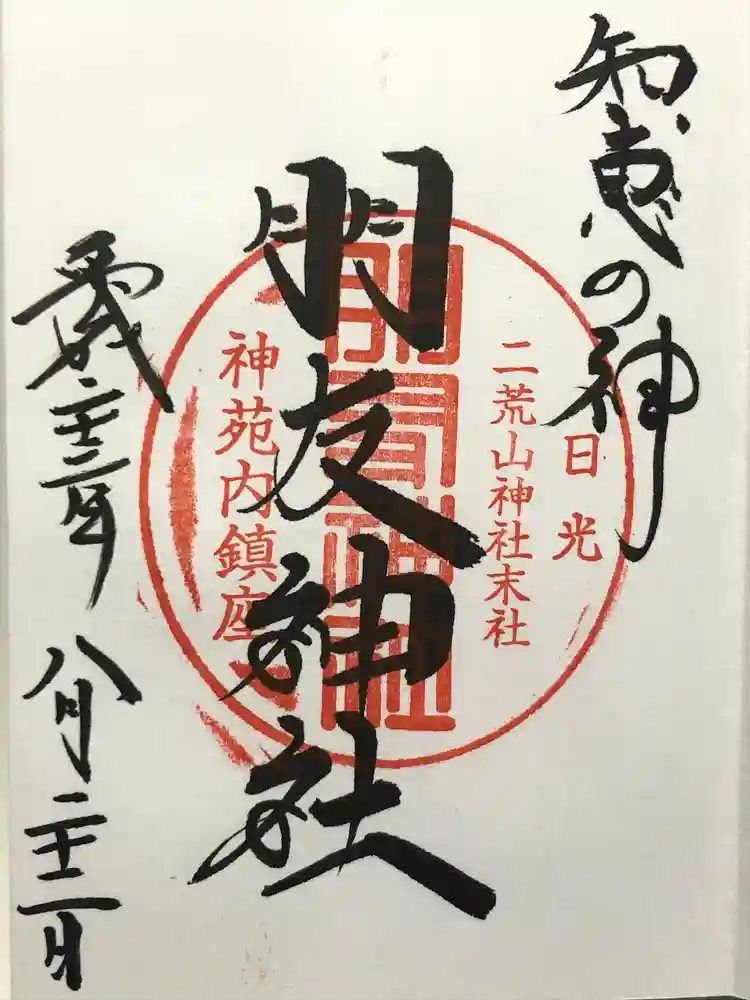 知恵の神
日光
二荒山神社末社
朋友神社
朋友神社
神苑内鎮座
平成
八月